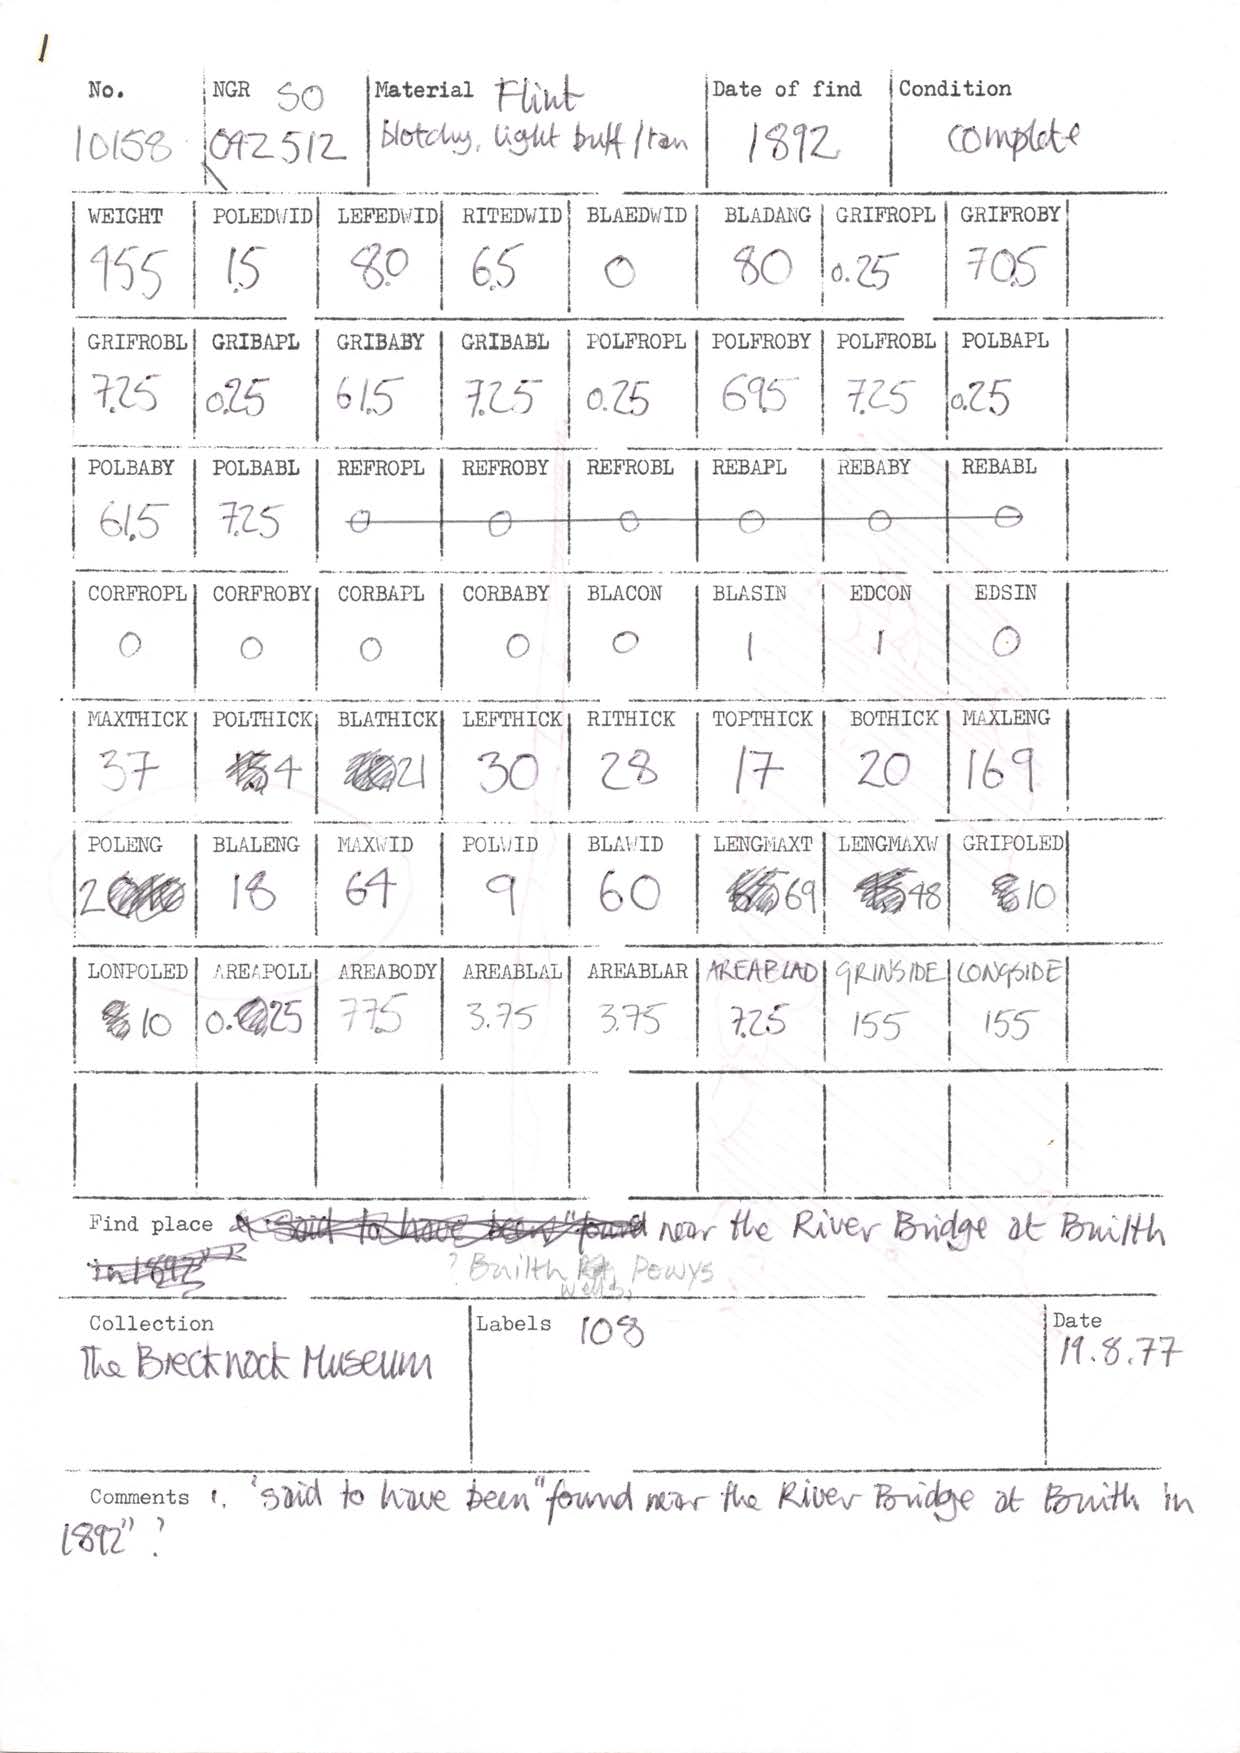 1
No. NGR SO Material Flint Date of find Condition
10158 092512 blotchy, light buff/tan 1892 complete
WEIGHT POLEDWID LEFEDWID RITEDWID BLAEDWID BLADANG GRIFROPL GRIFROBY
455 1.5 8.0 6.5 0 80 0.25 70.5
GRIFROBL GRIBAPL GRIBABY GRIBABL POLFROPL POLFROBY POLFROBL POLBAPL
7.25 0.25 61.5 7.25 0.25 69.5 7.25 0.25
POLBABY POLBABL REFROPL REFROBY REFROBL REBAPL REBABY REBABL
61.5 7.25 0 0 0 0 0 0
CORFROPL CORFROBY CORBAPL CORBABY BLACON BLASIN EDCON EDSIN
0 0 0 0 0 1 1 0
MAXTHICK POLTHICK BLATHICK LEFTHICK RITHICK TOPTHICK BOTHICK MAXLENG
37 4 21 30 28 17 20 169
POLENG BLALENG MAXWID POLWID BLAWID LENGMAXT LENGMAXW GRIPOLED
2 18 64 9 60 69 48 10
LONPOLED AREAPOLL AREABODY AREABLAL AREABLAR AREABLAD GRINSIDE LONGSIDE
10 0.25 77.5 3.75 3.75 7.25 155 155
Find place said to have been "found near the River Bridge at Builth
in 1892" ? Builth Wells, Powys
Collection Labels 108 Date
The Brecknock Museum 19.8.77
Comments 1. 'said to have been "found near the River Bridge at Builth in
1892" ?